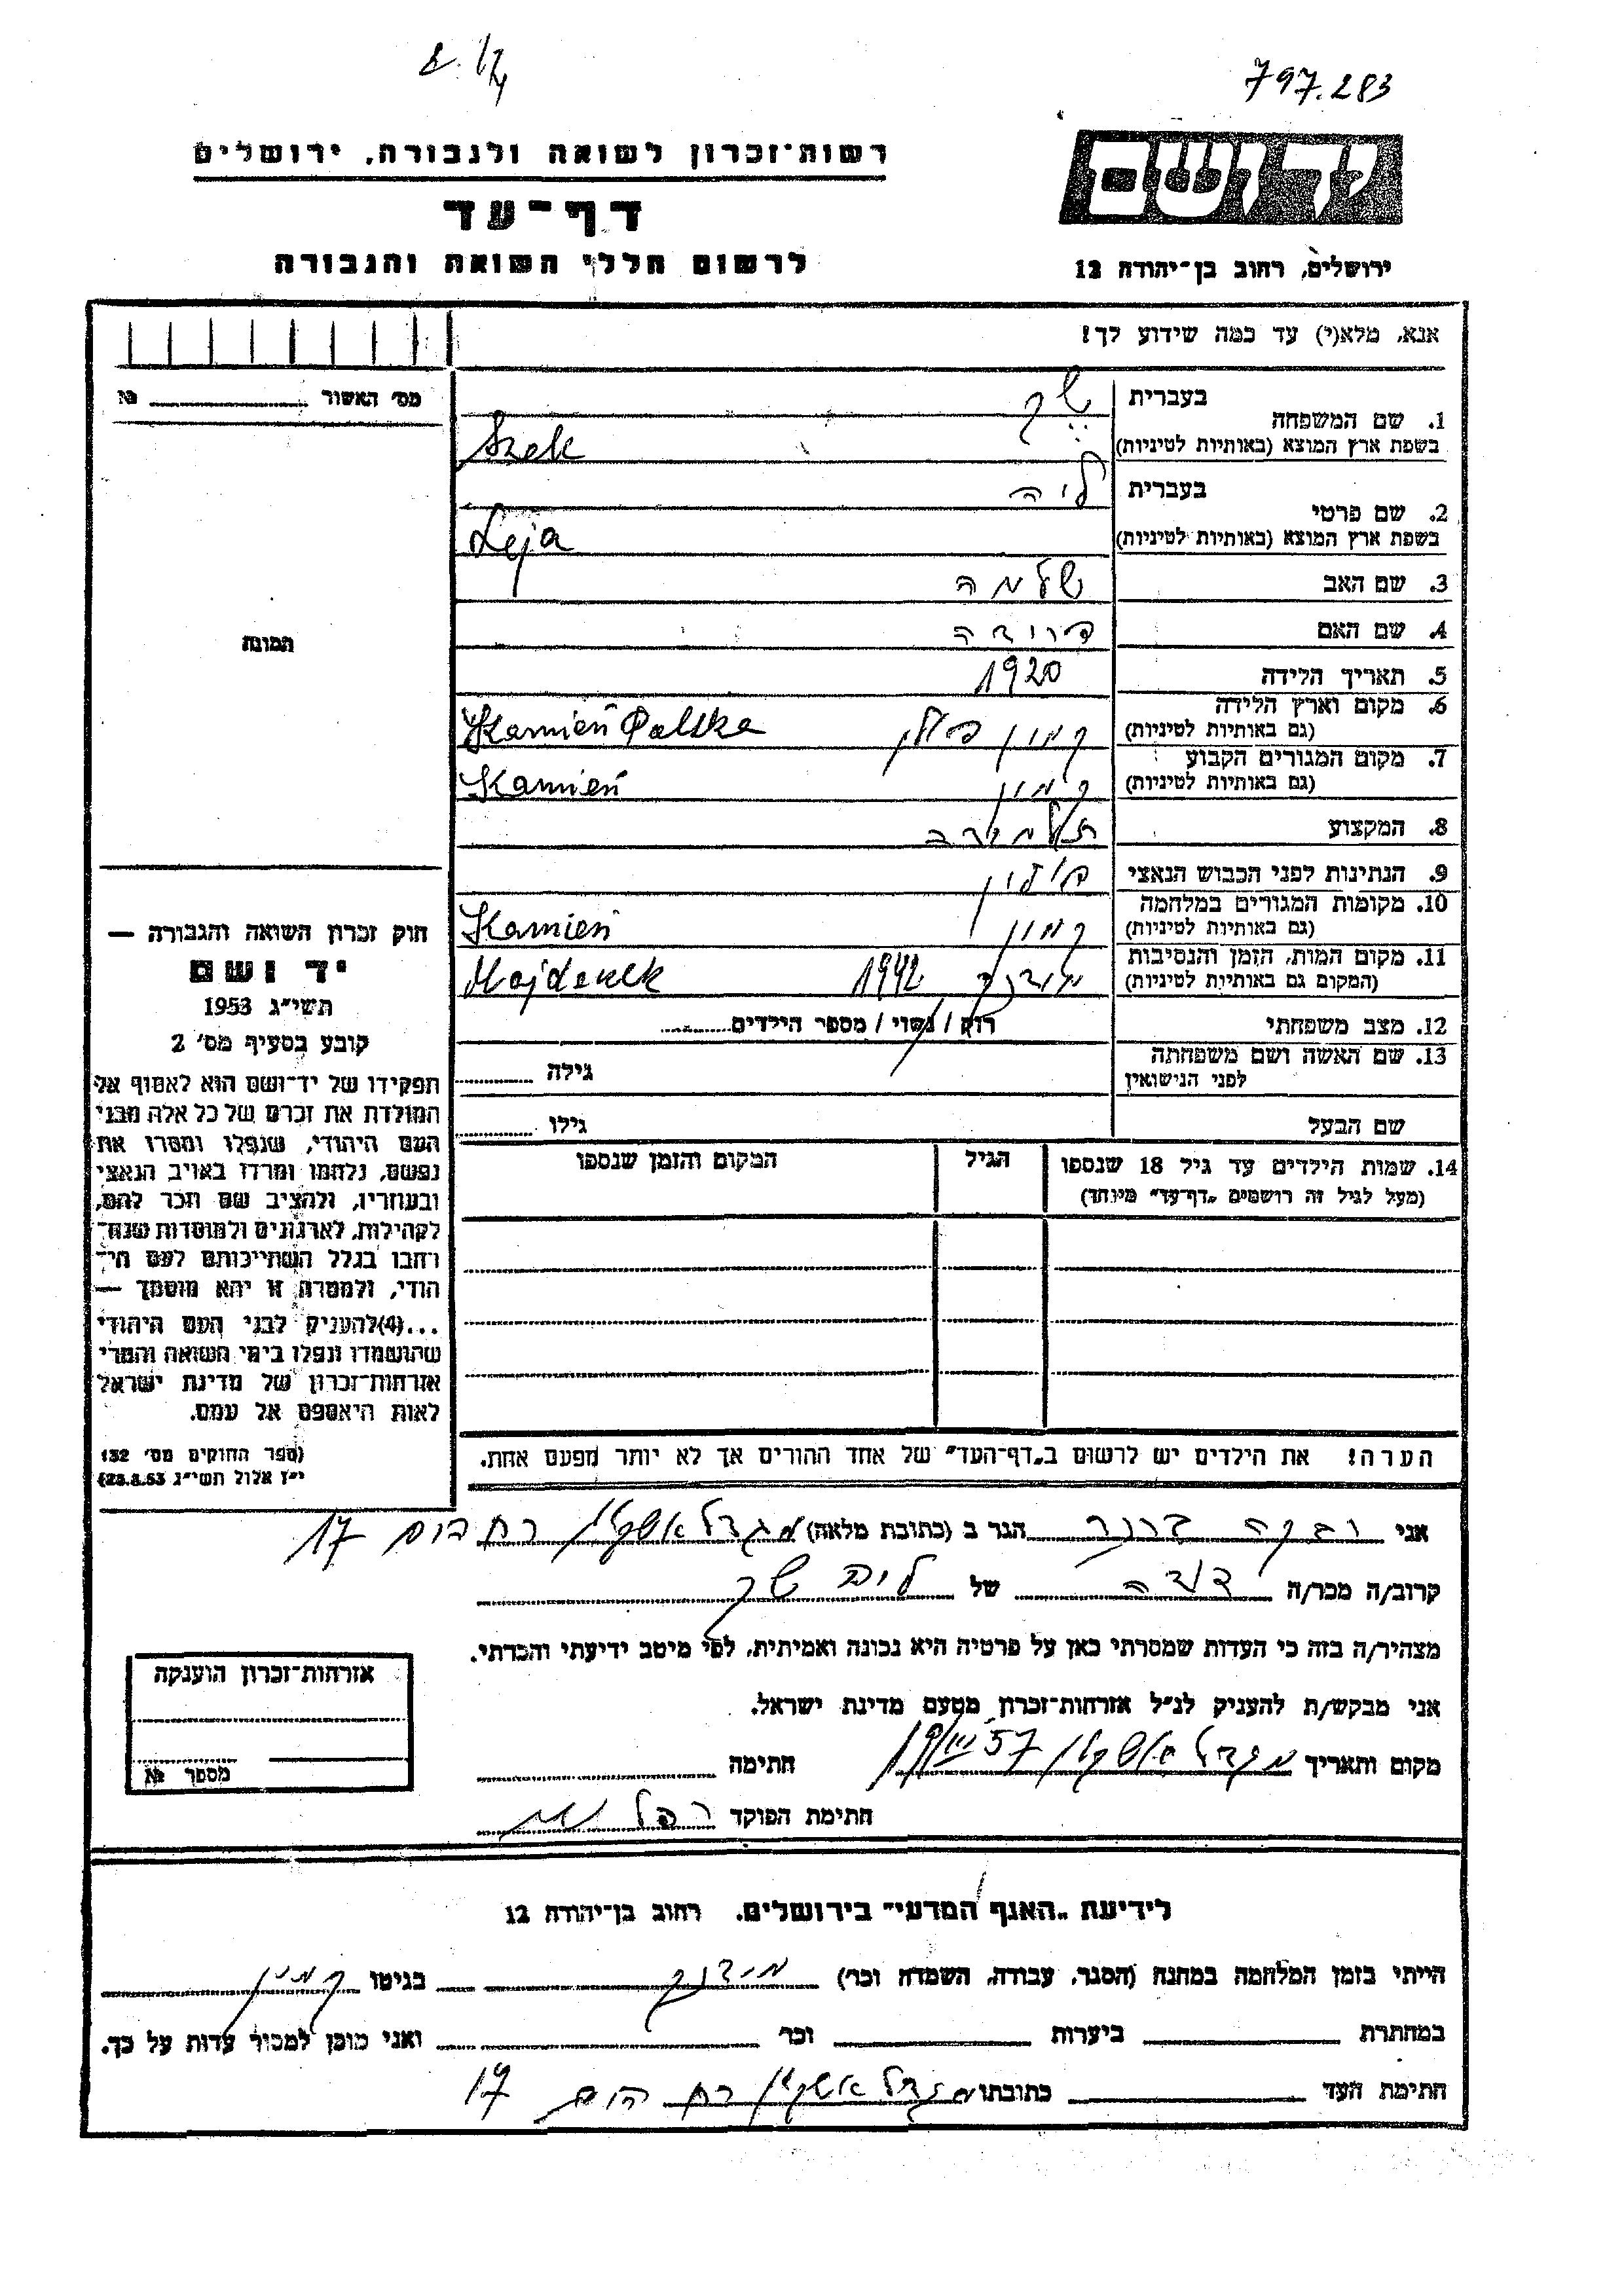 797.283
יד ושם
ירושלים, רחוב בן־יהודה 12
רשות־זכרון לשואה ולגבורה, ירושלים
דף־עד
לרשום חללי השואה והגבורה
אנא, מלא(י) עד כמה שידוע לך!
מס׳ האשור №
התמונה
1. שם המשפחה
בעברית שק
בשפת ארץ המוצא (באותיות לטיניות) Szek
2. שם פרטי
בעברית ליה
בשפת ארץ המוצא (באותיות לטיניות) Leja
3. שם האב שלמה
4. שם האם פרידה
5. תאריך הלידה 1920
6. מקום וארץ הלידה קמין פולין Kamień Polska
(גם באותיות לטיניות)
7. מקום המגורים הקבוע קמין Kamień
(גם באותיות לטיניות)
8. המקצוע
9. הנתינות לפני הכבוש הנאצי פולין
10. מקומות המגורים במלחמה קמין Kamień
(גם באותיות לטיניות)
11. מקום המות, הזמן והנסיבות מידנק 1942 Majdanek
(המקום גם באותיות לטיניות)
12. מצב משפחתי רוק / נשוי / מספר הילדים
13. שם האשה ושם משפחתה גילה
לפני הנישואין
שם הבעל גילו
14. שמות הילדים עד גיל 18 שנספו הגיל המקום והזמן שנספו
(מעל לגיל זה רושמים „דף־עד״ מיוחד)
הערה! את הילדים יש לרשום ב„דף־העד״ של אחד ההורים אך לא יותר מפעם אחת.
חוק זכרון השואה והגבורה —
יד ושם
תשי״ג 1953
קובע בסעיף מס׳ 2
תפקידו של יד־ושם הוא לאסוף אל
המולדת את זכרם של כל אלה מבני
העם היהודי, שנפלו ומסרו את
נפשם, נלחמו ומרדו באויב הנאצי
ובעוזריו, ולהציב שם וזכר להם,
לקהילות, לארגונים ולמוסדות שנח־
רבו בגלל השתייכותם לעם הי־
הודי, ולמטרה זו יהא מוסמך —
...(4)להעניק לבני העם היהודי
שהושמדו ונפלו בימי השואה והמרי
אזרחות־זכרון של מדינת ישראל
לאות היאספם אל עמם.
(ספר החוקים מס׳ 132
י״ז אלול תשי״ג 28.8.53)
אני רבקה הגר ב (כתובת מלאה) מגדל אשקלון 17
קרוב/ה מכר/ה דודה של ליה שק
מצהיר/ה בזה כי העדות שמסרתי כאן על פרטיה היא נכונה ואמיתית, לפי מיטב ידיעתי והכרתי.
אני מבקש/ת להעניק לנ״ל אזרחות־זכרון מטעם מדינת ישראל.
מקום ותאריך מגדל אשקלון 19/III 57 חתימה
חתימת הפוקד
אזרחות־זכרון הוענקה
מספר №
לידיעת „האגף המדעי״ בירושלים, רחוב בן־יהודה 12
הייתי בזמן המלחמה במחנה (הסגר, עבודה, השמדה וכו׳) מידנק בגיטו קמין
במחתרת ביערות וכו׳ ואני מוכן למסור עדות על כך.
חתימת העד כתובתו מגדל אשקלון 17